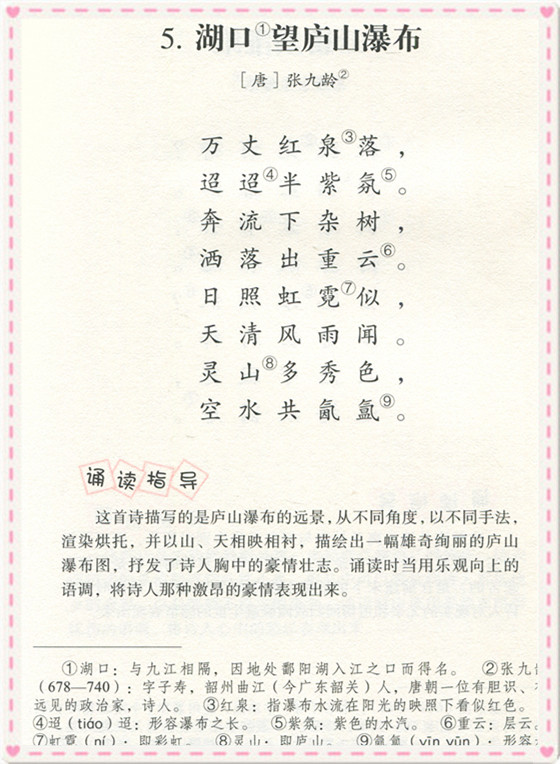 5. 湖口①望庐山瀑布
［唐］张九龄②
万丈红泉③落，
迢迢④半紫氛⑤。
奔流下杂树，
洒落出重云⑥。
日照虹霓⑦似，
天清风雨闻。
灵山⑧多秀色，
空水共氤氲⑨。
诵读指导
这首诗描写的是庐山瀑布的远景，从不同角度，以不同手法，
渲染烘托，并以山、天相映相衬，描绘出一幅雄奇绚丽的庐山
瀑布图，抒发了诗人胸中的豪情壮志。诵读时当用乐观向上的
语调，将诗人那种激昂的豪情表现出来。
①湖口：与九江相隔，因地处鄱阳湖入江之口而得名。 ②张九
（678—740）：字子寿，韶州曲江（今广东韶关）人，唐朝一位有胆识、
远见的政治家，诗人。 ③红泉：指瀑布水流在阳光的映照下看似红色。
④迢（tiáo）迢：形容瀑布之长。 ⑤紫氛：紫色的水汽。 ⑥重云：层云。
⑦虹霓（ní）：即彩虹。 ⑧灵山：即庐山。 ⑨氤氲（yīn yūn）：形容